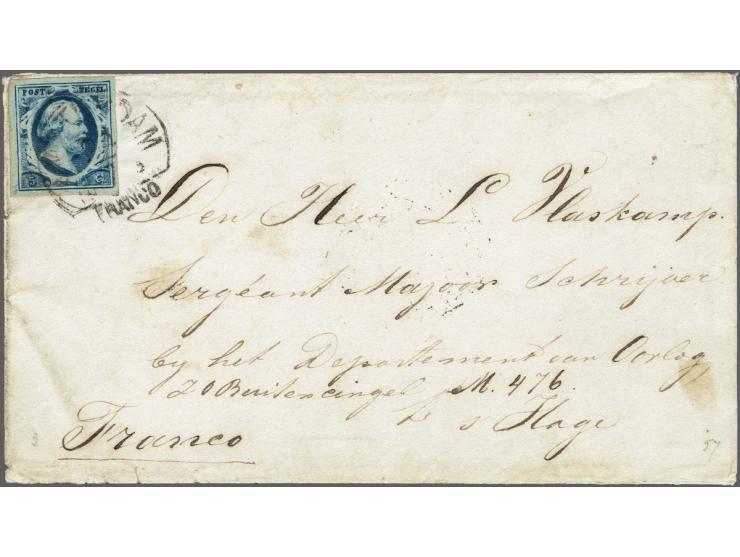 POST ZEGEL
5 C.
DAM
FRANCO
Den Heer L Vlaskamp.
Sergéant Majoor Schrijver
by het Departement van Oorlog
Z O Buitencingel M. 476.
s Hage
Franco
57